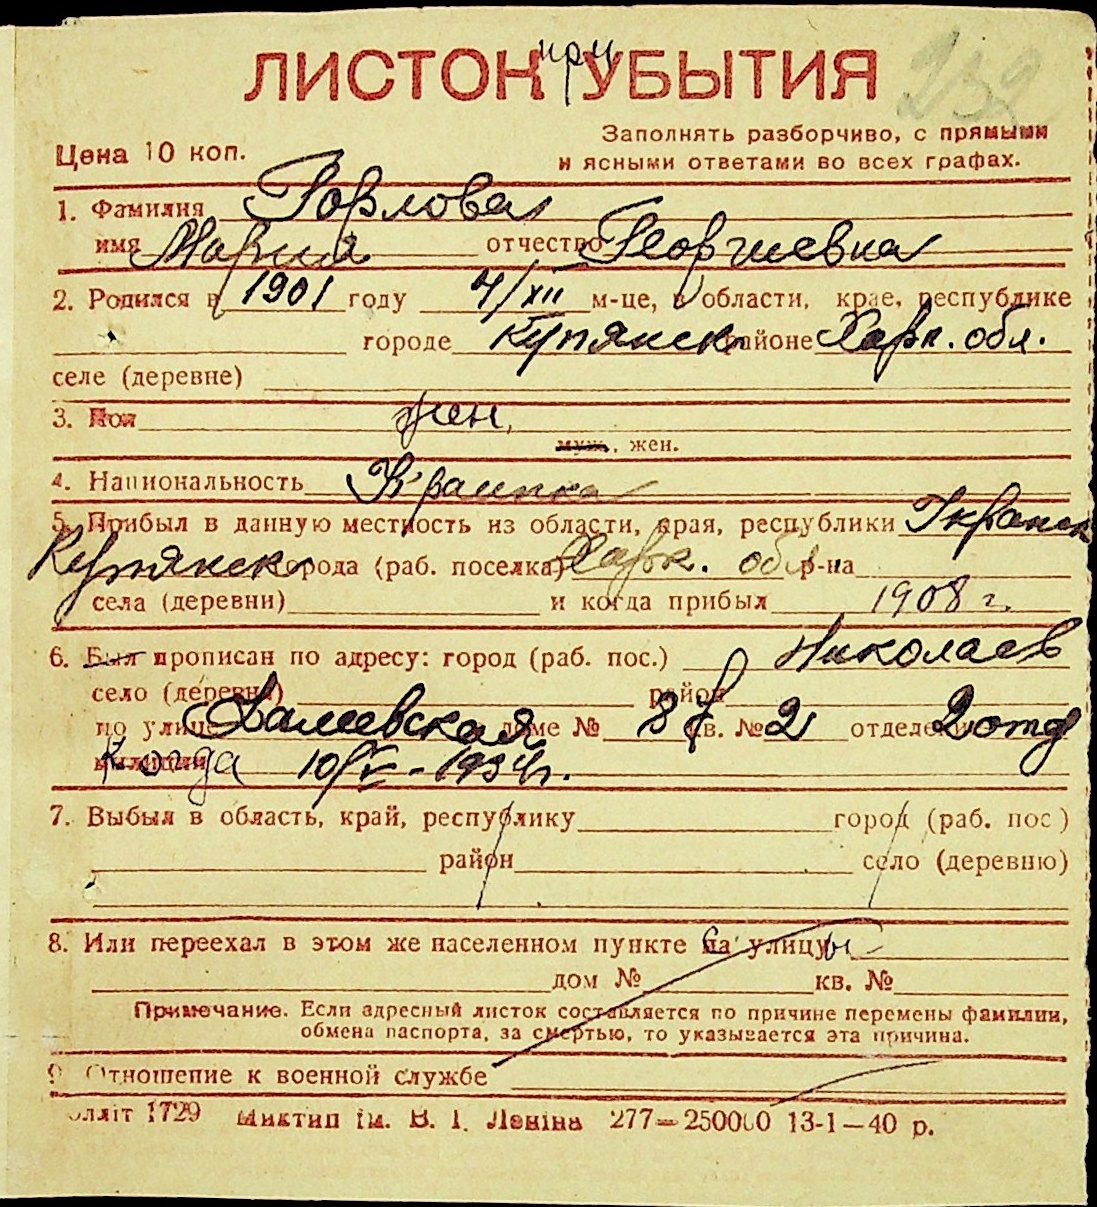 ЛИСТОК при УБЫТИЯ
232
Цена 10 коп.
Заполнять разборчиво, с прямыми
и ясными ответами во всех графах.
1. Фамилия Горлова
имя Мария отчество Георгиевна
2. Родился в 1901 году 4/XII м-це, в области, крае, республике
городе Купянск районе Харк. обл.
селе (деревне)
3. Пол жен.
муж., жен.
4. Национальность Украинка
5. Прибыл в данную местность из области, края, республики
Купянск города (раб. поселка) Харьк. обл. р-на
села (деревни) и когда прибыл 1908 г.
6. Был прописан по адресу: город (раб. пос.) Николаев
село (деревня) район
по улице доме № 87 кв. № 2 отделение 2 отд
милиции Когда 10/V - 1934 г.
7. Выбыл в область, край, республику город (раб. пос)
район село (деревню)
8. Или переехал в этом же населенном пункте на улицу
дом № кв. №
Примечание. Если адресный листок составляется по причине перемены фамилии,
обмена паспорта, за смертью, то указывается эта причина.
9 Отношение к военной службе
олліт 1729 Миктип ім. В. І. Леніна 277—250000 13-1—40 р.